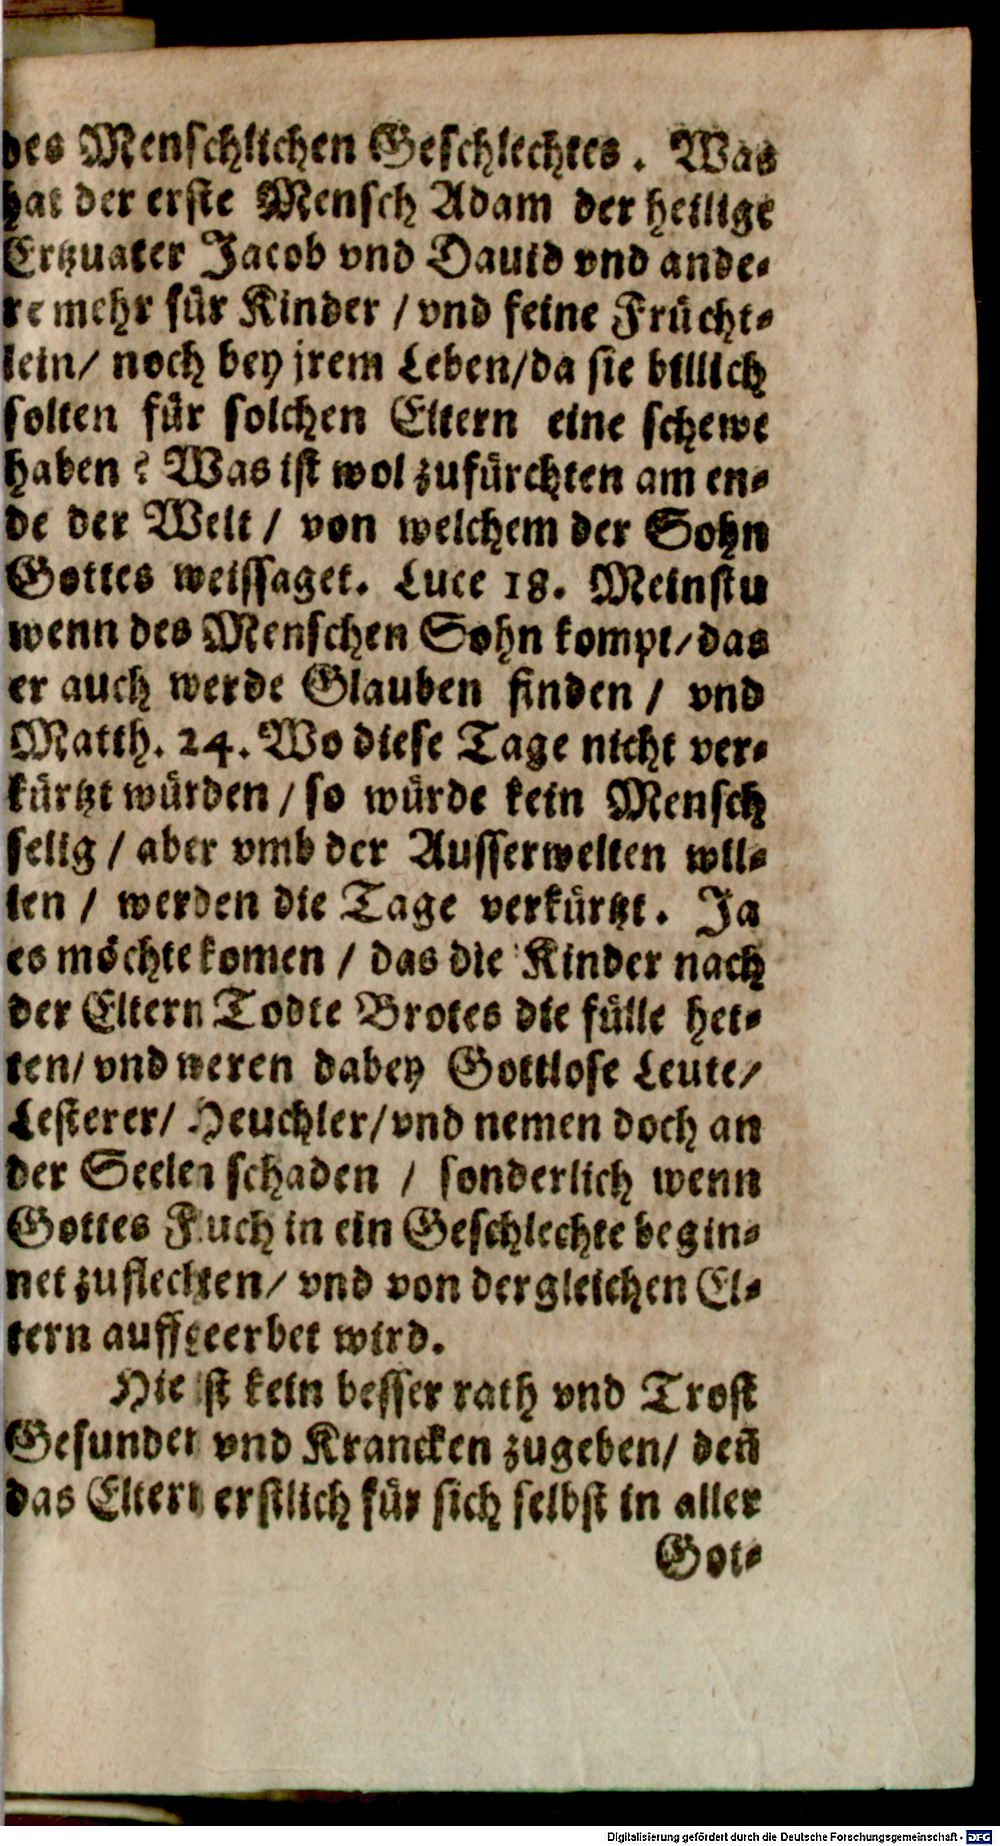 des Menschlichen Geschlechtes. Was
hat der erste Mensch Adam der heilige
Ertzuater Jacob vnd Dauid vnd ande⸗
re mehr für Kinder / vnd feine Frücht⸗
lein/ noch bey jrem Leben/da sie billich
solten für solchen Eltern eine schewe
haben? Was ist wol zufürchten am en⸗
de der Welt / von welchem der Sohn
Gottes weissaget. Luce 18. Meinstu
wenn des Menschen Sohn kompt/das
er auch werde Glauben finden / vnd
Matth. 24. Wo diese Tage nicht ver⸗
kürtzt würden / so würde kein Mensch
selig / aber vmb der Ausserwelten wil⸗
len / werden die Tage verkürtzt. Ja
es möchte komen / das die Kinder nach
der Eltern Todte Brotes die fülle het⸗
ten/ vnd weren dabey Gottlose Leute/
Lesterer/ Heuchler/vnd nemen doch an
der Seelen schaden / sonderlich wenn
Gottes Fluch in ein Geschlechte begin⸗
net zuflechten/ vnd von dergleichen El⸗
tern auffgeerbet wird.
Hie ist kein besser rath vnd Trost
Gesunden vnd Krancken zugeben/ den̄
das Eltern erstlich für sich selbst in aller
Got⸗
Digitalisierung gefördert durch die Deutsche Forschungsgemeinschaft - DFG